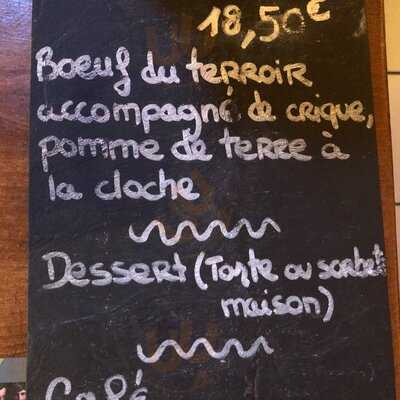 18,50€
Boeuf du terroir
accompagné de crique,
pomme de terre à
la cloche
Dessert (Tarte ou sorbet
maison)
Café